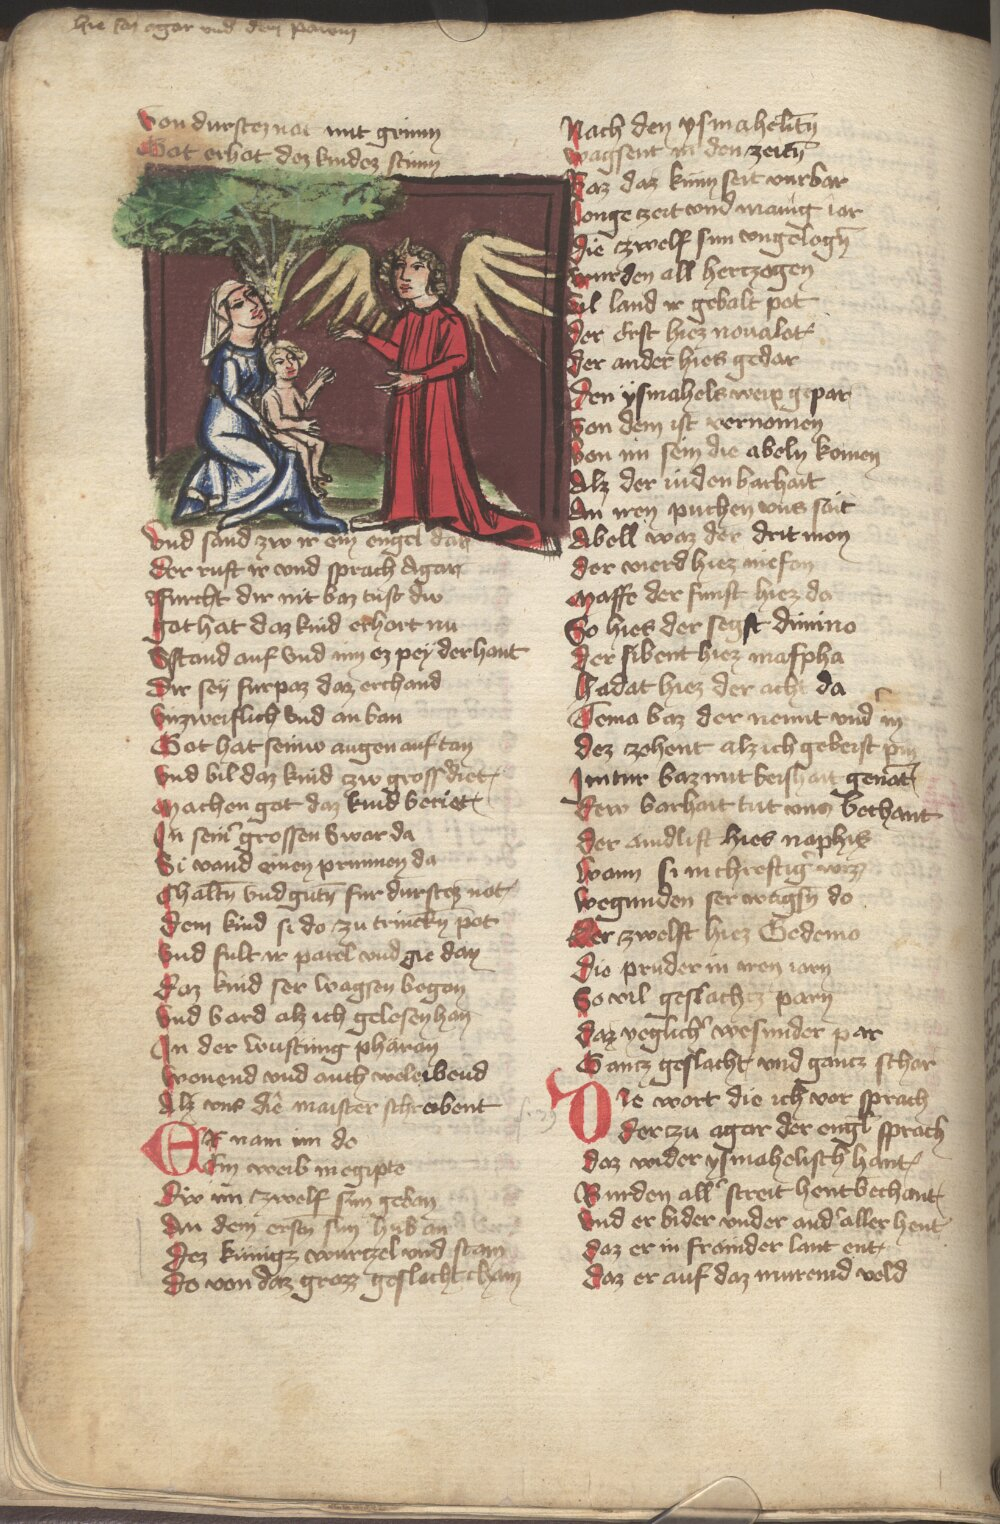 hie sas agar vnd den paum
Von durstez not mit grimm
Got erhot dez kindez stimm
Vnd sand zw ir ein engel dar
Der ruft ir vnd sprach Agar
Furcht dir nit waz tust dw
got hat daz kind erhort nu
Stand auf vnd nim ez pey der hant
Dir sey furpaz daz erchand
Vnzweiflich vnd an wan
Got hat seinw augen auf tan
Vnd wil daz kind zw gross diet
machen got daz kind beriet
In seinˀ grossen swar da
Si vand einen prunnen da
Chaltn̄ vnd gutn̄ fur durstez not
dem kind si do zu trinckn̄ pot
Vnd fult ir parel vnd gie dan
daz kind ser wagsen began
Vnd ward alz ich gelesen han
In der wustung pharan
wonend vnd auch beleibend
Alz vns die maister schreibent
ER nam im do
Ein weib in egipto
Diw im zwelf sun gewan
An dem ersten sun hub an
Dez kunigz wurczel vnd stam
do von daz grozz geslacht cham
Nach den ysmahelitn̄
wagsent in den zeitn̄
Waz daz kunn seit vurbar
longe zeit vnd manig iar
die zwelf sun vngelogn̄
wurden all hertzogen
vil land ir gewalt pot
der erst hiez noualot
der ander hies gedar
den ysmahels weip gepar
Von dem ist vernomen
von im sein die abeln komen
Alz der iuden warhait
An iren puchen vns sait
Abell waz der drit man
der vierd hiez miefan
masse der funft hiez da
So hies der segst dimino
der sibent hiez mafpha
hadat hiez der acht da
Tema waz der nennt vnd in
dez zehent alz ich geweist pin
Imtur waz mit weishait genāt
dew warhait tut vns bechant
der aindlift hies naphis
wann si in chreftigˀ wis
wegunden ser wagsn̄ do
der zwelft hiez Gedemo
die pruder in iren iarn
So vil geslachtz parn
daz yeglichˀ wesunder par
Gancz geslacht vnd gancz schar
DIe wort die ich vor sprach
der zu agar der engl sprach
daz wider ysmahelisch hant
Wurden allˀ streit hent bechant
Vnd er wider vnder andˀ aller hent
daz er in fremder lant ent
daz er auf daz murenid veld